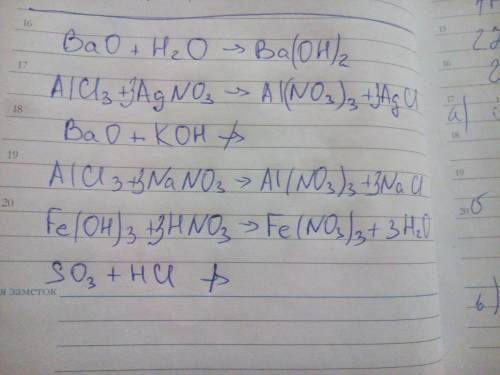 16
BaO + H2O → Ba(OH)2
17
AlCl3 + 3AgNO3 → Al(NO3)3 + 3AgCl
18
BaO + KOH ↛
19
AlCl3 + 3NaNO3 → Al(NO3)3 + 3NaCl
20
Fe(OH)3 + 3HNO3 → Fe(NO3)3 + 3H2O
SO3 + HCl ↛
я заметок
15
16
17
а)
18
19
20
б
в)